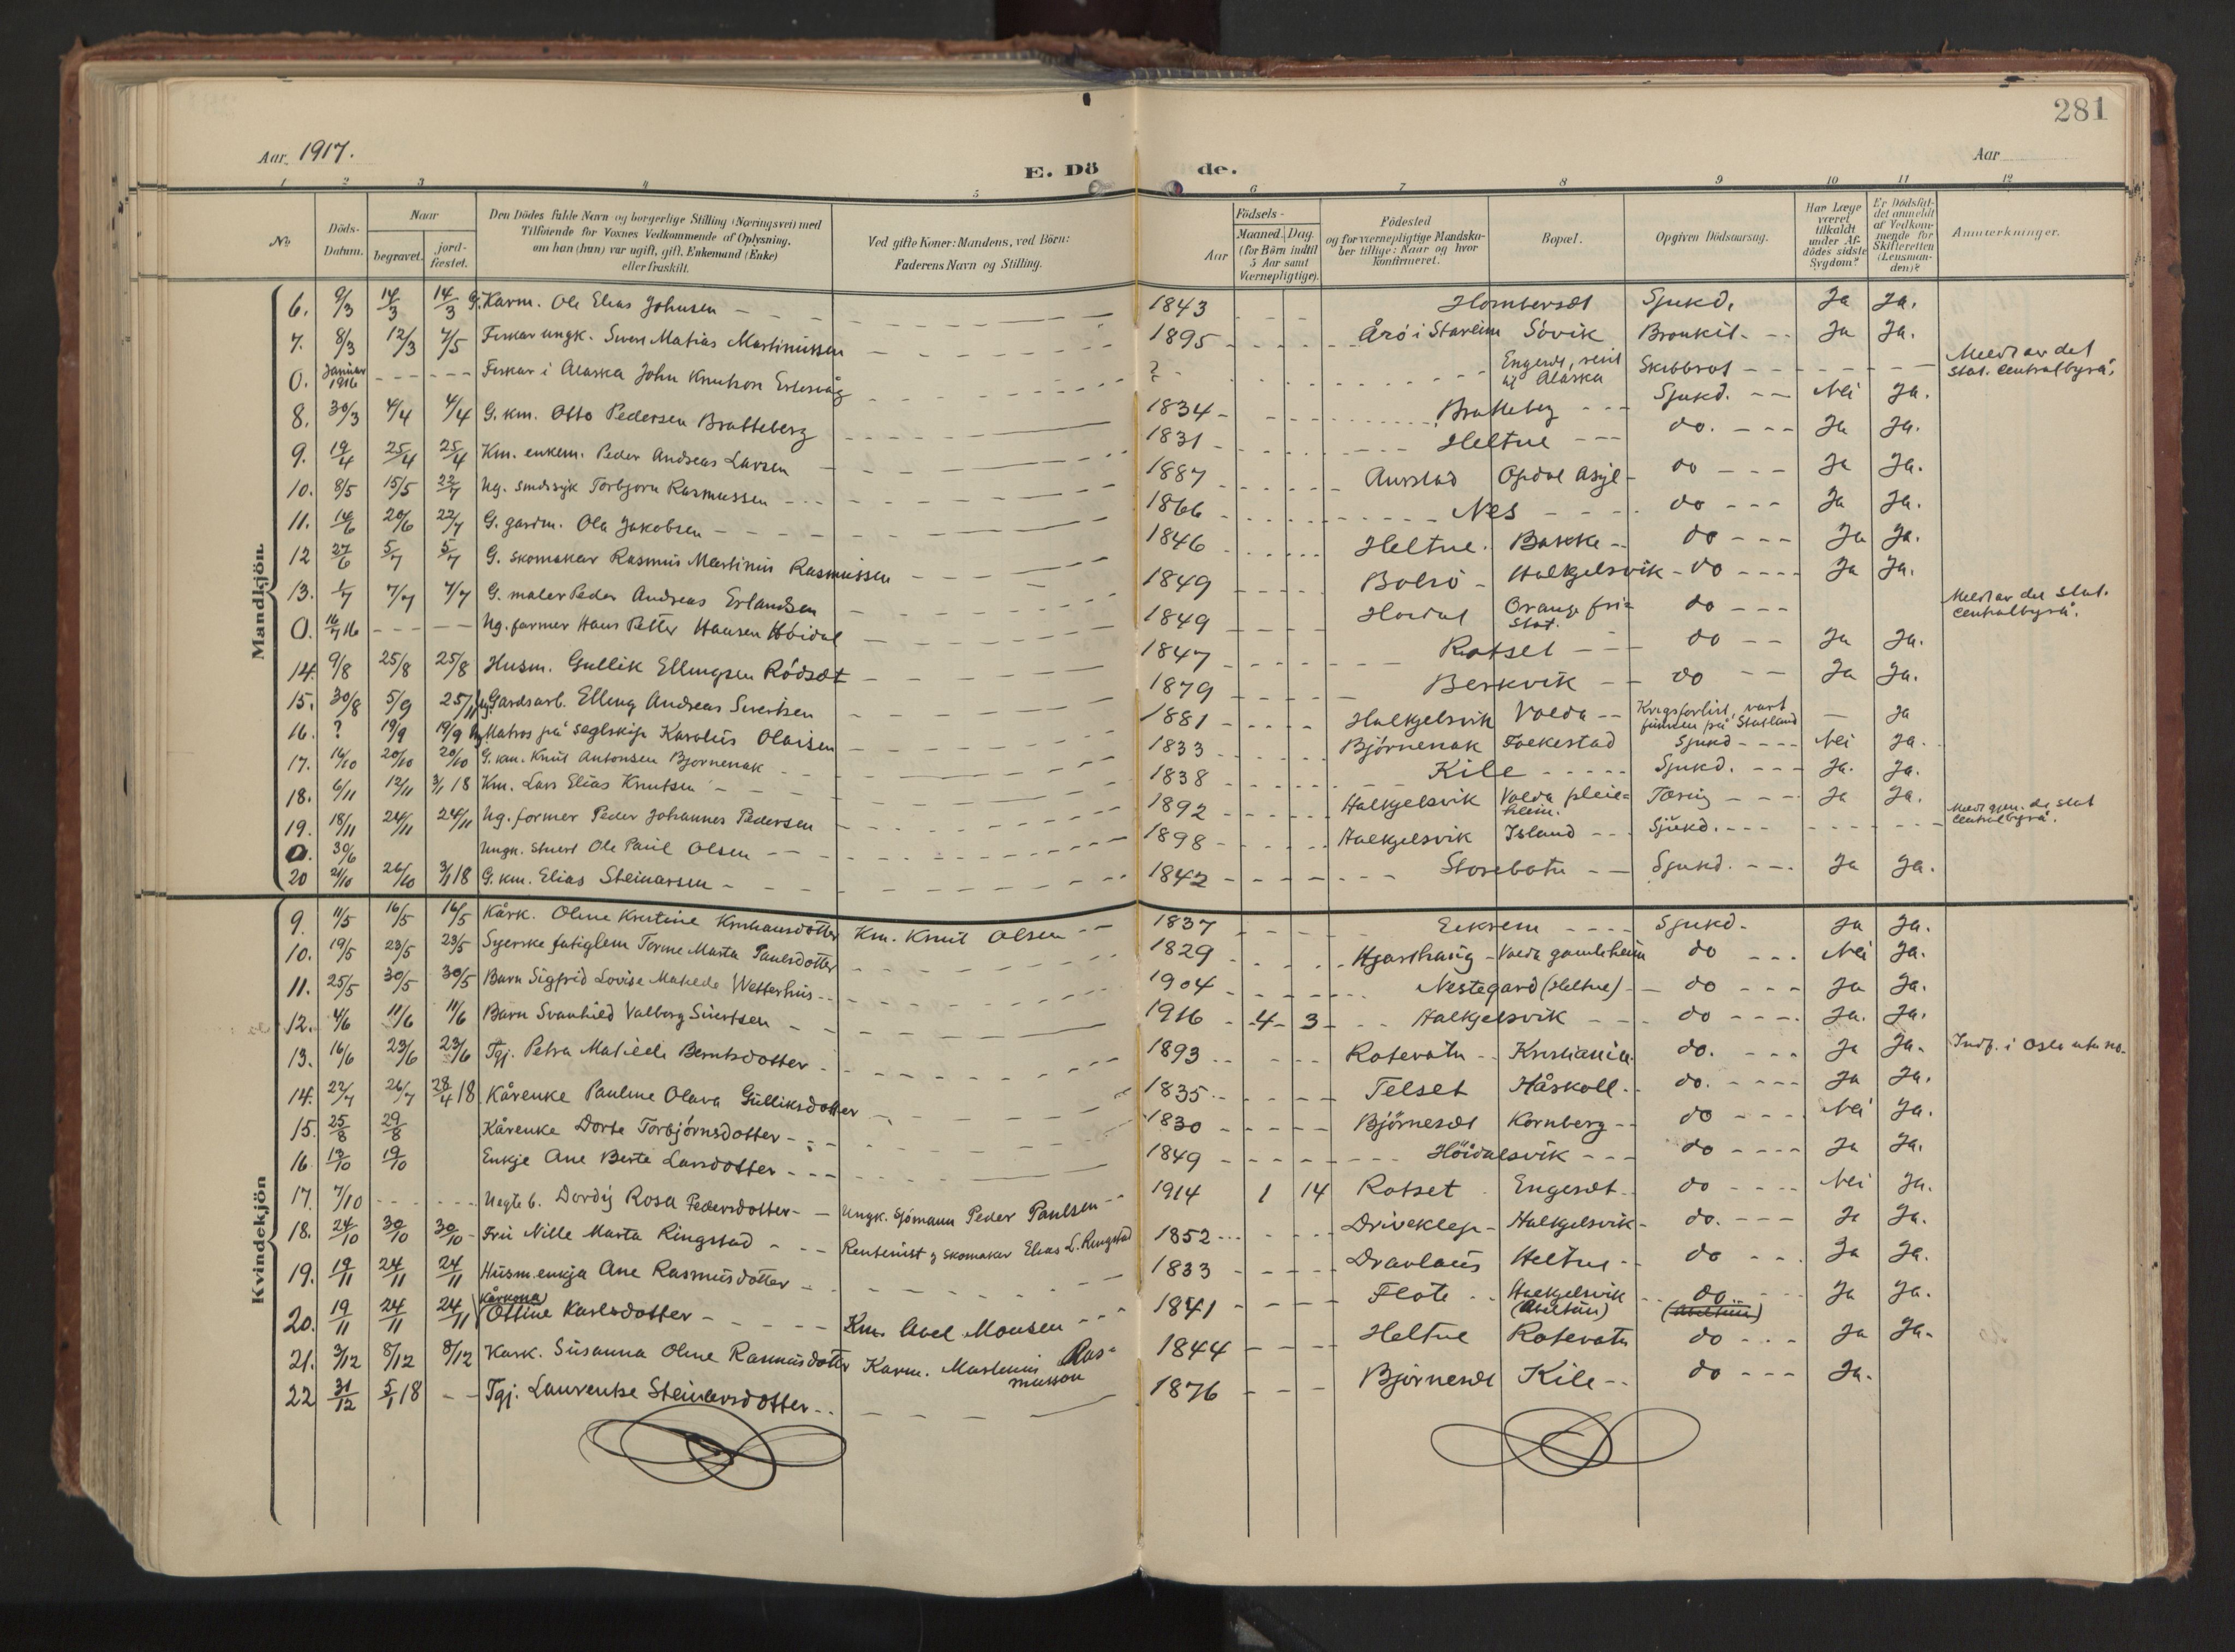 281
Aar 1917.
E. Döde.
Aar
1 2 3 4 5 6 7 8 9 10 11 12
No.
Döds-Datum.
Naar begravet. jord-fæstet.
Den Dödes fulde Navn og borgerlige Stilling (Næringsvei) med Tilföiende for Voxnes Vedkommende af Oplysning, om han (hun) var ugift, gift, Enkemand (Enke) eller fraskilt.
Ved gifte Koner: Mandens, ved Börn: Faderens Navn og Stilling.
Födsels-
Aar
Maaned. Dag.
(for Börn indtil 5 Aar samt Værnepligtige).
Födested og for værnepligtige Mandskaber tillige: Naar og hvor konfirmeret.
Bopæl.
Opgiven Dödsaarsag.
Har Læge været tilkaldt under Afdödes sidste Sygdom?
Er Dödsfaldet anmeldt af Vedkommende for Skifteretten (Lensmanden)?
Anmærkninger.
Mandkjön.
6. 9/3 14/3 14/3 G. Karm. Ole Elias Johnsen 1843 Sjukd. Ja Ja.
7. 8/3 12/3 7/5 Fiskar ungk. Sivert Matias Martinussen 1895 Årö i Sövik Bronkit. Ja Ja.
0. Januar 1916 Fiskar i Alaska John Knutson ? Engeset, reist til Alaska Skibbrot Meldt av det stat. Centralbyrå.
8. 30/3 4/4 4/4 G. km. Otto Pedersen Bratteberg 1834 Bratteberg Sjukd. Nei Ja.
9. 19/4 25/4 25/4 Km. enkem. Peder Andreas Larsen 1831 Heltne do. Ja Ja.
10. 8/5 15/5 22/7 Ug. sindssyk Torbjörn Rasmussen 1887 Aurstad Opdöl Asyl do Ja Ja.
11. 14/6 20/6 22/7 G. gardm. Ola Jakobsen 1866 Nes do Ja Ja.
12 27/6 5/7 5/7 G. skomakar Rasmus Martinus Rasmussen 1846 Heltne. Bakke do Ja Ja.
13. 1/7 7/7 7/7 G. maler Peder Andreas Erlandsen 1849 Bolsö Halkjelsvik do Ja Ja.
0. 16/7 16 Ug. farmer Hans Petter Hansen Höidal 1849 Hoidal Orange fristat. do Meldt av det stat. Centralbyrå.
14. 9/8 25/8 25/8 Husm. Gullik Ellingsen Rödsæt 1847 Rotset do Ja Ja.
15. 30/8 5/9 25/11 Ug. Gardsarb. Elling Andreas Sivertsen 1879 Berkvik do Ja Ja.
16. ? 19/9 19/9 Ug. Matros på seglskip Karolus Olaisen 1881 Halkjelsvik Volda Krigsforlist, vart funnen på Statland — Ja
17. 16/10 20/10 20/10 G. km. Knut Antonsen Bjørnenak 1833 Björnenak Folkestad Sjukd Nei Ja.
18. 6/11 12/11 3/1 18 Km. Lars Elias Knutsen 1838 Kile Sjukd. Ja. Ja.
19. 18/11 24/11 24/11 Ug. former Peder Johannes Pedersen 1892 Halkjelsvik Volda pleieheim. Tæring Ja Ja.
0. 30/6 Ungk. Stuert Ole Paul Olsen 1898 Halkjelsvik Island Sjukd. Meldt gjen. de stat Centralbyrå.
20 21/10 26/10 3/1 18 G. km. Elias Steinarsen 1842 Storebotn Sjukd. Ja Ja.
Kvindekjön
9. 11/5 16/5 16/5 Kårk. Oline Kristine Kristiansdotter Km. Knut Olsen 1837 Eikrem Sjukd. Ja Ja.
10. 19/5 23/5 23/5 Syerske fatiglem Torine Marta Paulsdotter 1829 Hjarthaug Volda gamleheim do Nei Ja.
11. 25/5 30/5 30/5 Barn Sigfrid Lovise Matilde Wetterhus 1904 Nestegard (Heltne) do Ja Ja.
12. 4/6 11/6 11/6 Barn Svanhild Valborg Sivertsen 1916 4 3 Halkjelsvik do Ja. Ja.
13. 16/6 23/6 23/6 Tgj. Petra Matilde Berntsdotter 1893 Rotevatn Kristiania do. Ja Ja. Indf. i Oslo
14. 22/7 26/7 28/4 18 Kårenke Pauline Olava Gulliksdotter 1835 Telset Håskoll do. Ja Ja.
15. 25/8 29/8 Kårenke Dorte Torbjörnsdotter 1830 Björneset Kornberg do Nei Ja.
16 13/10 19/10 Enkje Ane Berte Larsdotter 1849 Höidalsvik do Ja Ja.
17. 7/10 Uegte b. Dordy Rosa Pedersdotter Ungk. Sjömann Peder Paulsen 1914 1 14 Rotset Engeset do Nei Ja.
18. 24/10 30/10 30/10 Fru Nille Marta Ringstad Rentenist og skomakar Elias L. Ringstad 1852 Driveklep Halkjelsvik do. Ja Ja.
19. 19/11 24/11 24/11 Husm.enkja Ane Rasmusdotter 1833 Dravlaus Heltne do Ja Ja.
20. 19/11 24/11 24/11 Kårkona Ottine Karlsdotter Km. Abel Monsen 1841 Flöte Halkjelsvik (Abeltun) do (Abeltun) Ja Ja.
21. 3/12 8/12 8/12 Kark. Susanna Oline Rasmusdotter Karm. Martinus Rasmusson 1844 Heltne Rotevatn do Ja Ja.
22 31/12 5/1 18 Tgj. Laurentse Steinarsdotter 1876 Bjørneset Kile do Ja.